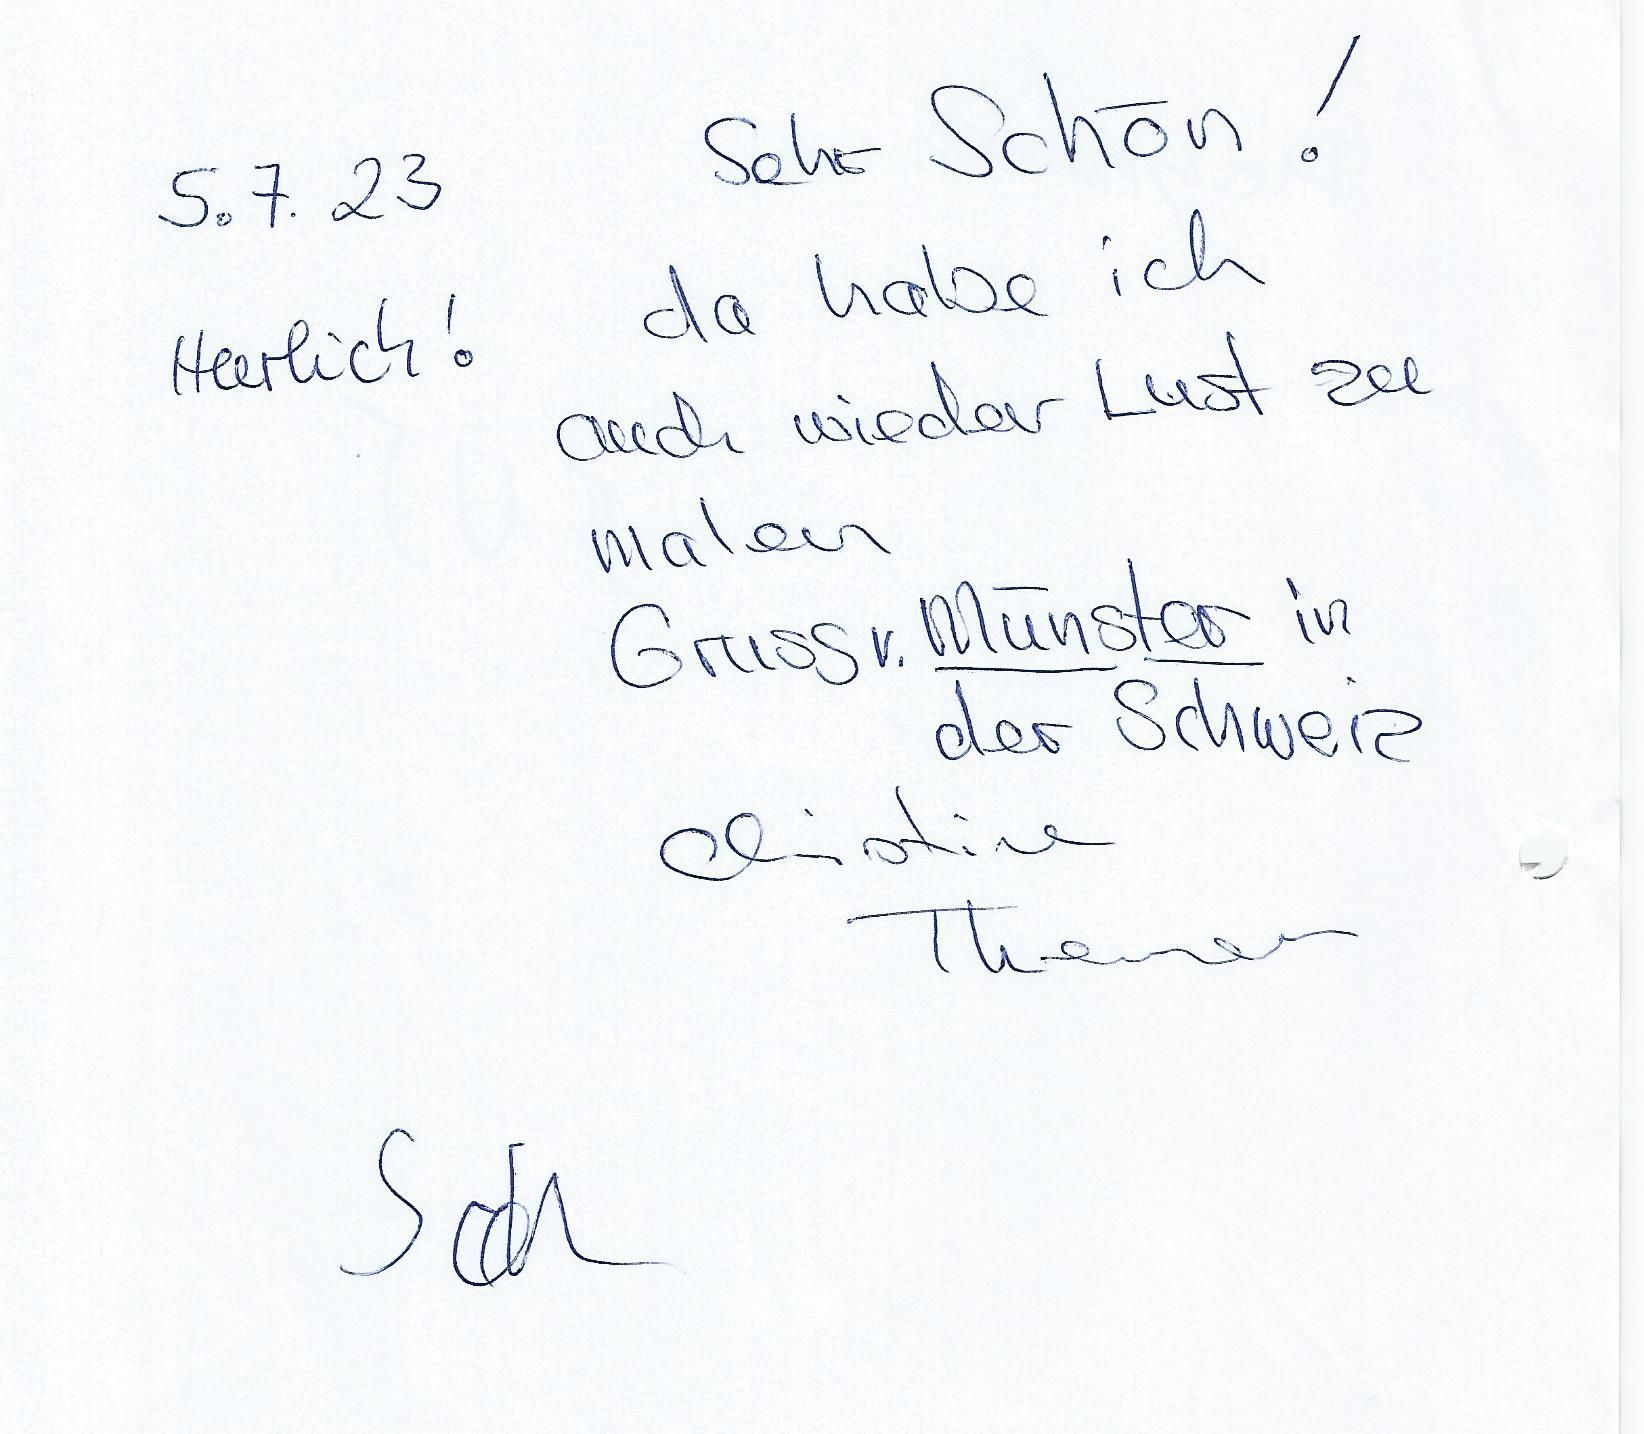 5.7.23
Herrlich!
Sehr Schön!
da habe ich
auch wieder Lust zu
malen
Gruss v. Münster in
der Schweiz
Christine